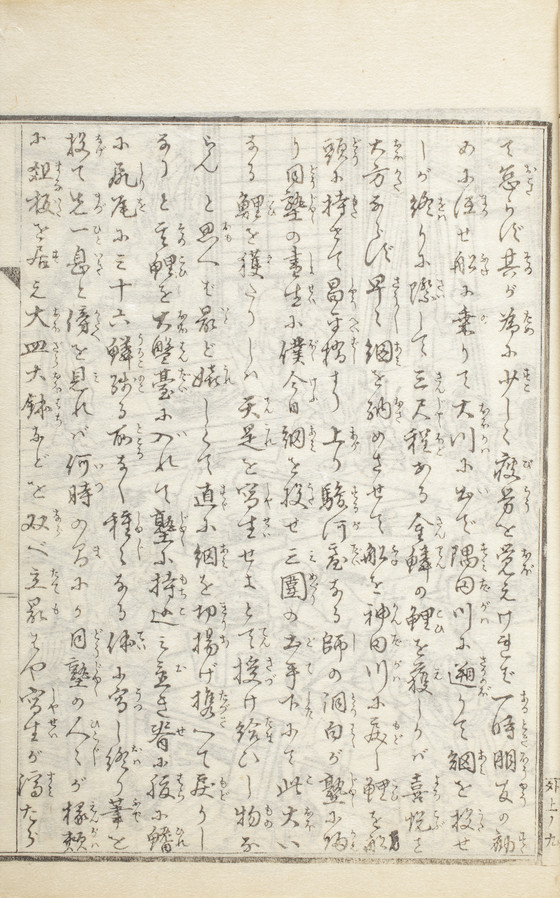 て怠らず其が為に少しく疲労を覚えければ一時朋友の勧
めに任せ船に乗りて大川に出で隅田川に遡りて網を投せ
しが終りに際して三尺程なる金鱗の鯉を獲しが喜悦を
大方ならず早く網を納めさせて船を神田川に返し鯉を船
頭に持せて昌平橋より上り駿河台なる師の洞白が塾に帰
り同塾の書生に僕今日網を投せ三囲の土手下にて此大い
なる鯉を獲たりしハ天是を写生せよとて授け給ひし物な
らん と思へば最ど嬉しくて直に網を切揚げ携へて戻りし
なりと其鯉を大盤台に入れて塾に持込ミ先き背に腹に鰭
に尻尾に三十六鱗残る所なく種々なる体に写し終り筆を
投て先一息と傍を見れバ何時の間にか同塾の人々が椽頬
に俎板を居え大皿大鉢などを双べ立最はや写生が済たら
外上ノ九